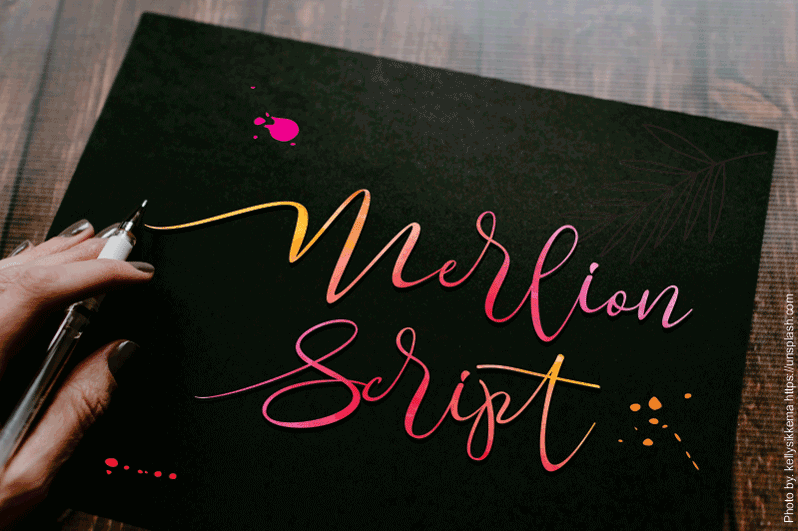 Merlion
Script
Photo by. kellysikkema https://unsplash.com